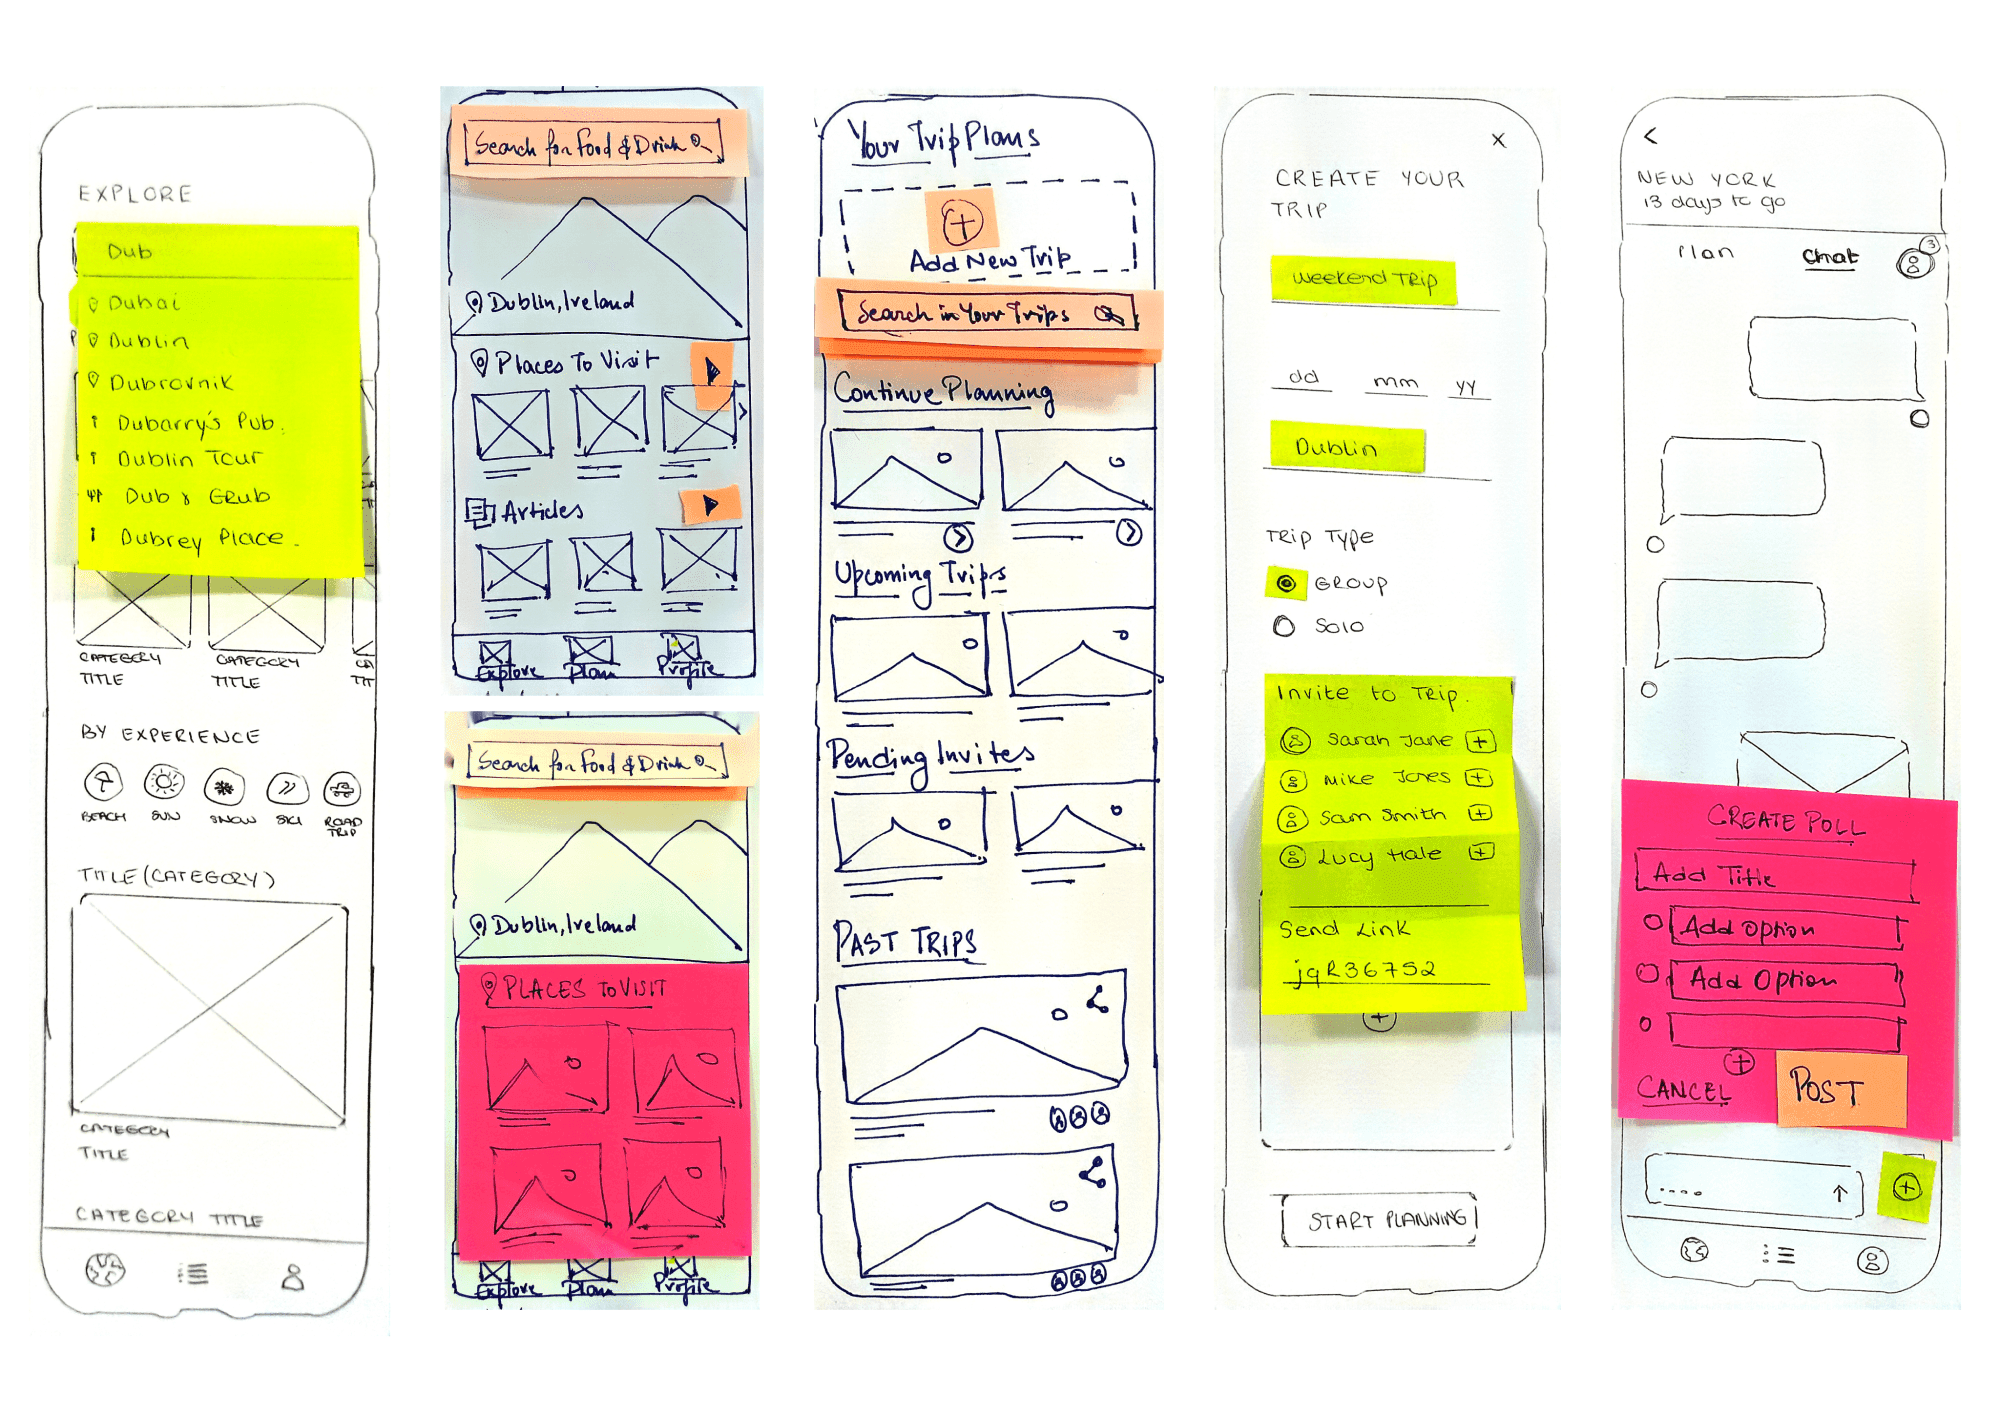 EXPLORE
Dub
Dubai
Dublin
Dubrovnik
Dubarry's Pub.
Dublin Tour
Dub & Grub
Dubrey Place.
CATEGORY
TITLE
CATEGORY
TITLE
CA
TIT
BY EXPERIENCE
BEACH
SUN
SNOW
SKI
ROAD
TRIP
TITLE (CATEGORY)
CATEGORY
TITLE
CATEGORY TITLE
Search for Food & Drink
Dublin, Ireland
Places To Visit
Articles
Explore
Plan
Profile
Search for Food & Drink
Dublin, Ireland
PLACES TO VISIT
Explore
Plan
Profile
Your Trip Plans
Add New Trip
Search in Your Trips
Continue Planning
Upcoming Trips
Pending Invites
PAST TRIPS
x
CREATE YOUR
TRIP
Weekend Trip
dd mm yy
Dublin
Trip Type
GROUP
SOLO
Invite to Trip.
Sarah Jane
Mike Jones
Sam Smith
Lucy Hale
Send Link
jqR36752
START PLANNING
NEW YORK
13 days to go
Plan
Chat
3
CREATE POLL
Add Title
Add Option
Add Option
CANCEL
POST